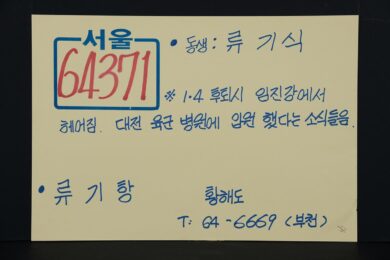 서울
64371
• 동생: 류 기 식
※ 1·4 후퇴시 임진강에서
헤어짐. 대전 육군 병원에 입원 했다는 소식들음.
• 류 기 항
황해도
T: 64-6669 (부천)